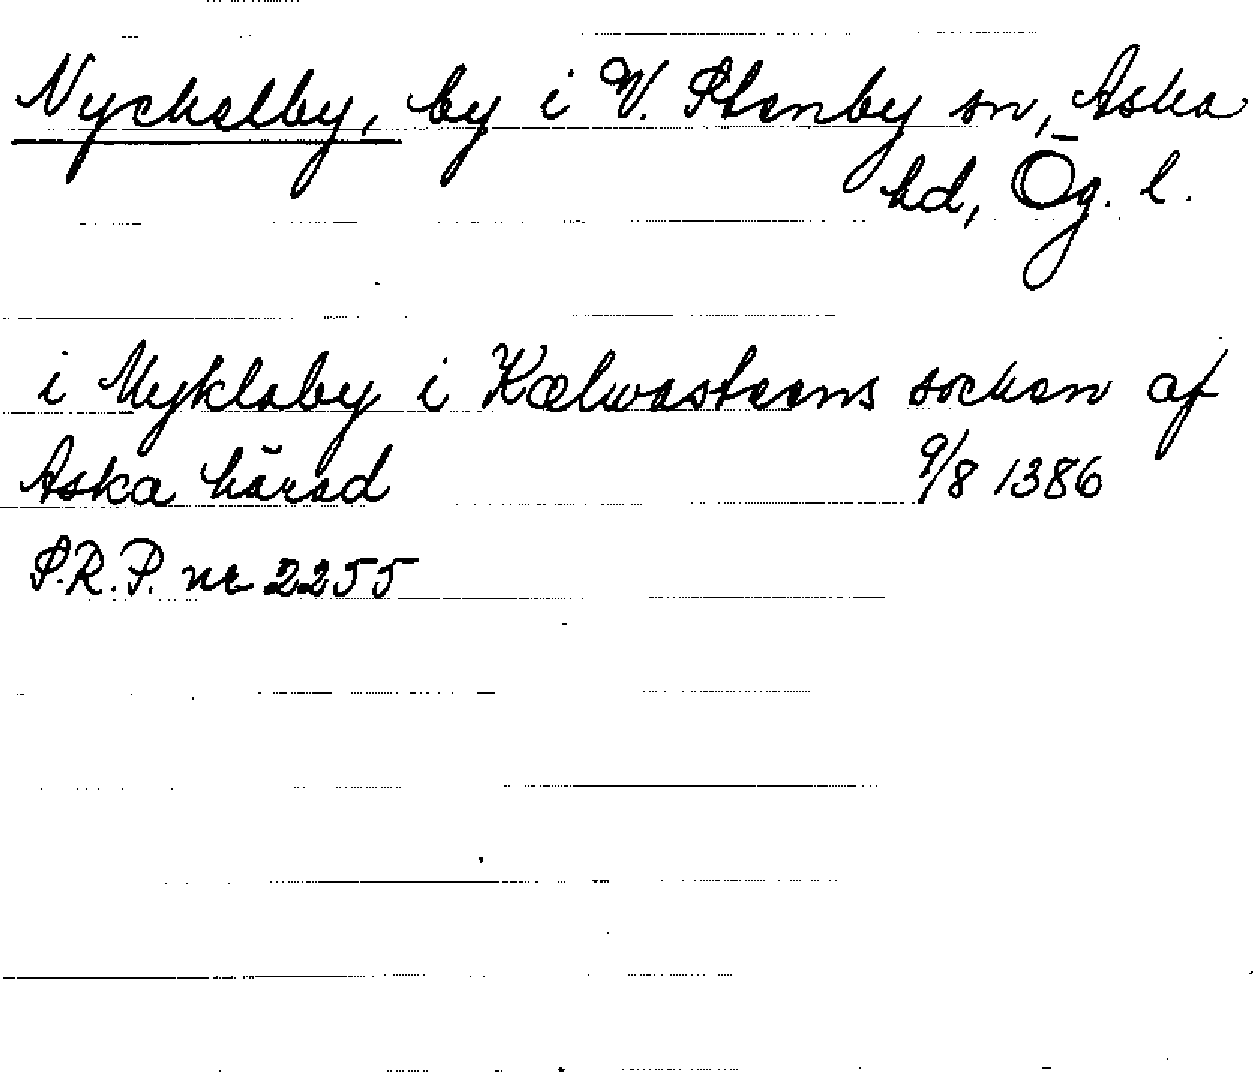 Nyckelby, by i V. Stenby sn, Aska
hd, Ög. l.
i Mykleby i Kælwasteens socken af
Aska härad 9/8 1386
S.R.P. nr 2255